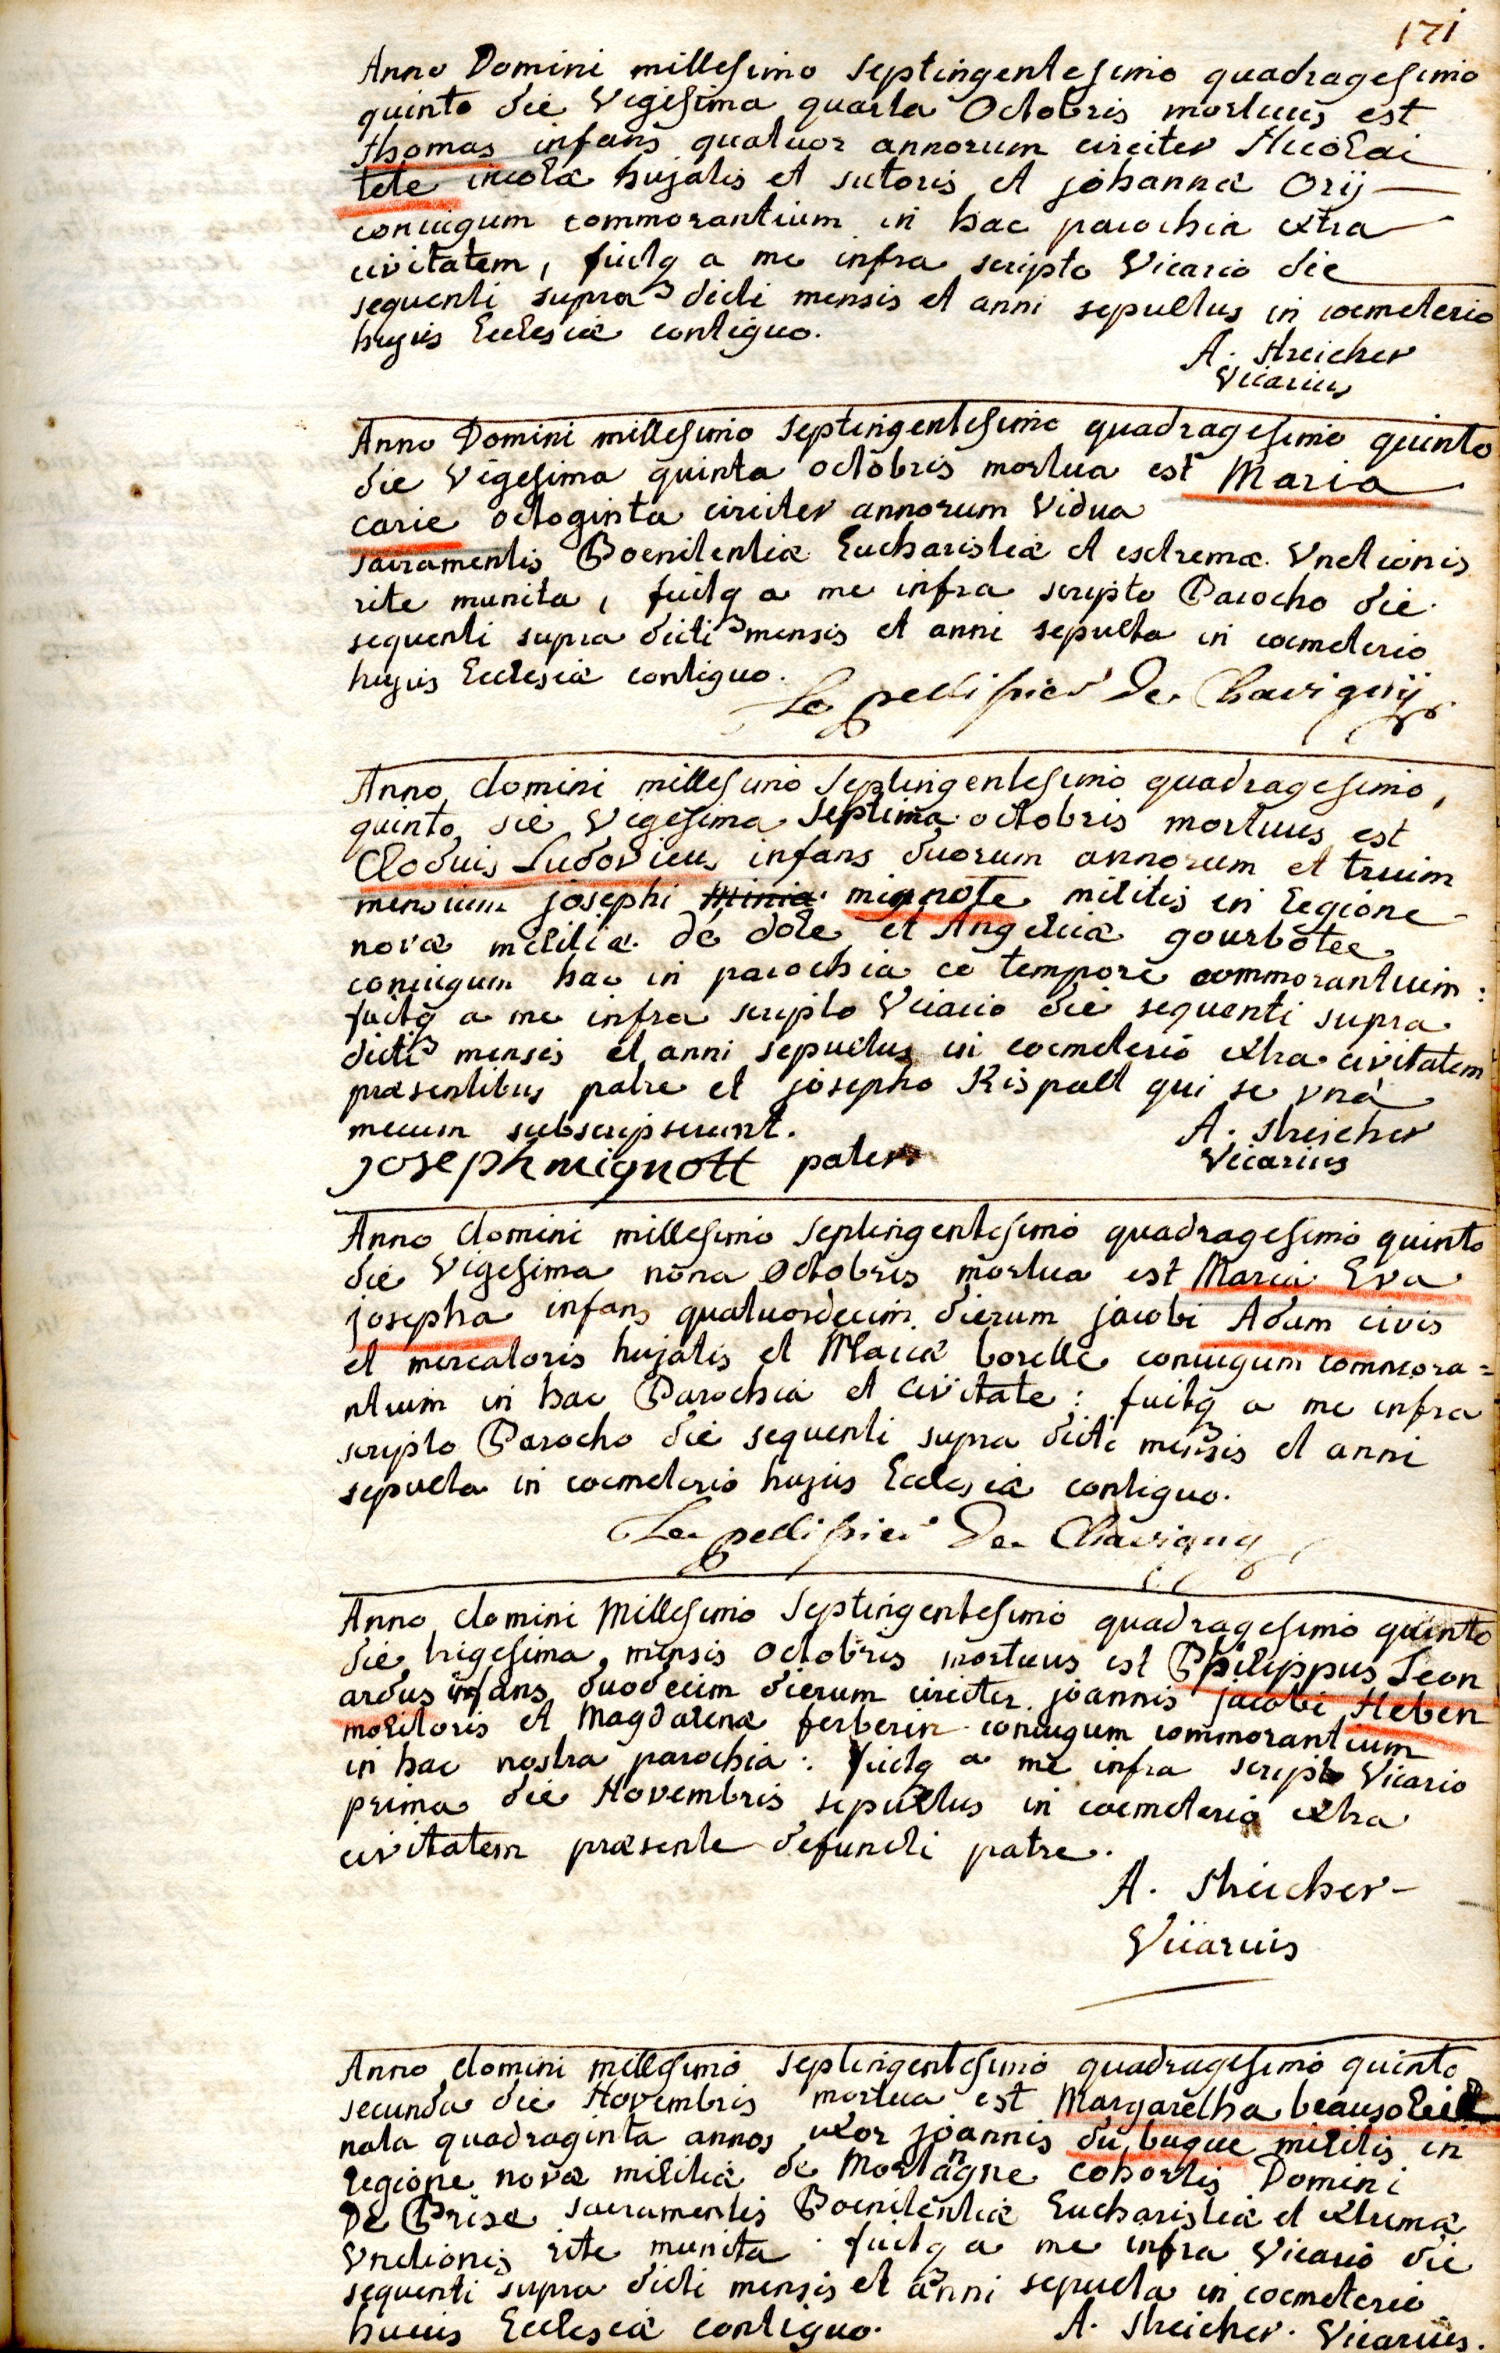 171
Anno Domini millesimo septingentesimo quadragesimo
quinto die Vigesima quarta Octobris mortuus est
thomas infans quatuor annorum circiter Nicolai
tete incolæ hujatis et sutoris et johannæ Orij
coniugum commorantium in hac parochia extra
civitatem, fuitq a me infra scripto Vicario die
sequenti supra dicti mensis et anni sepultus in coemeterio
hujus Ecclesiæ contiguo.
A. Streicher
Vicarius
Anno Domini millesimo septingentesimo quadragesimo quinto
die Vigesima quinta octobris mortua est Maria
carie octoginta circiter annorum Vidua
sacramentis Poenitentiæ Eucharistiæ et extremæ Vnctionis
rite munita, fuitq a me infra scripto Parocho die
sequenti supra dicti mensis et anni sepulta in coemeterio
hujus Ecclesiæ contiguo.
Le pellissier De Chavignÿ
Anno domini millesimo septingentesimo quadragesimo,
quinto die Vigesima septima octobris mortuus est
Clodius Ludovicus infans duorum annorum et trium
mensium josephi minia mignote militis in legione
novæ militiæ de dole et Angelicæ gourbotee
coniugum hac in parochia eo tempore commorantium:
fuitq a me infra scripto Vicario die sequenti supra
dicti mensis et anni sepultus in coemeterio extra civitatem
præsentibus patre et josepho Rispalt qui se vna
mecum subscripserunt.
A. Streicher
Vicarius
joseph mignott pater
Anno domini millesimo septingentesimo quadragesimo quinto
die Vigesima nona Octobris mortua est Maria Eva
josepha infans quatuordecim dierum jacobi Adam civis
et mercatoris hujatis et Mariæ borelle coniugum commora=
ntium in hac Parochia et Civitate: fuitq a me infra
scripto Parocho die sequenti supra dicti mensis et anni
sepulta in coemeterio hujus Ecclesiæ contiguo.
Le pellissier De Chavigny
Anno domini Millesimo Septingentesimo quadragesimo quinto
die trigesima mensis Octobris mortuus est Philippus Leon
ardus infans duodecim dierum circiter joannis jacobi Heben
molitoris et Magdalenæ ferberin coniugum commorantium
in hac nostra parochia: fuitq a me infra scripto Vicario
prima die Novembris sepultus in coemeterio extra
civitatem præsente defuncti patre.
A. Streicher
Vicarius
Anno domini millesimo septingentesimo quadragesimo quinto
secunda die Novembris mortua est Margaretha beausoleil
nata quadraginta annos uxor joannis du buque militis in
legione novæ militiæ de Mortangne cohortis Domini
De Prise sacramentis Poenitentiæ Eucharistiæ et extremæ
Vnctionis rite munita fuitq a me infra Vicario die
sequenti supra dicti mensis et anni sepulta in coemeterio
huius Ecclesiæ contiguo.
A. Streicher. Vicarius.